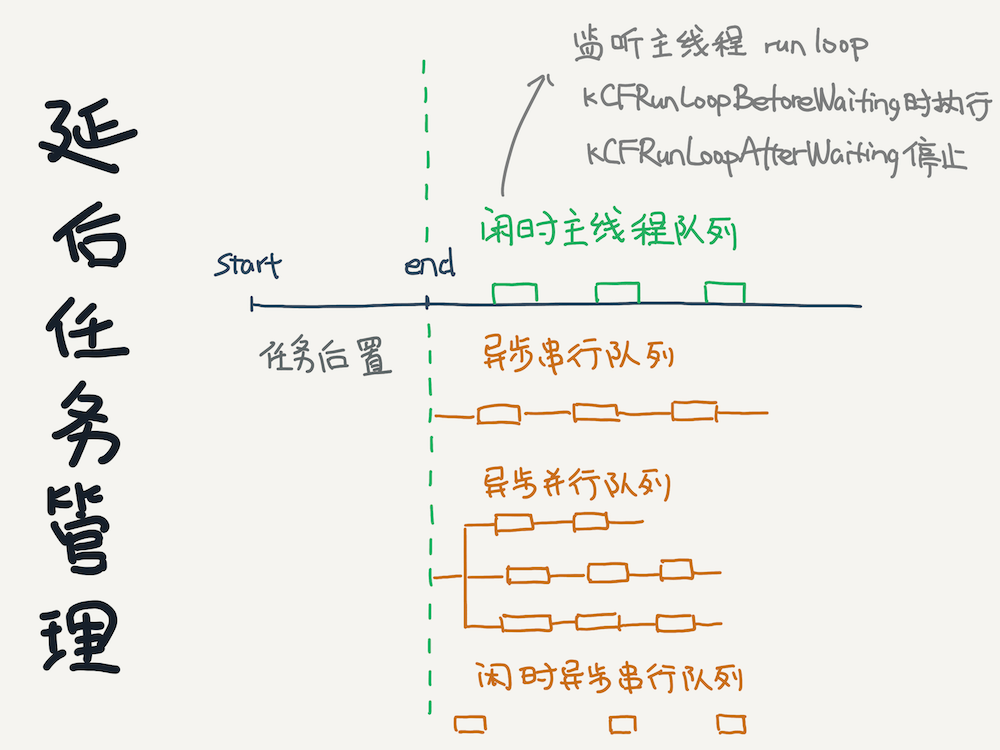 延后任务管理
监听主线程 run loop
kCFRunLoopBeforeWaiting时执行
kCFRunLoopAfterWaiting停止
闲时主线程队列
start
end
任务后置
异步串行队列
异步并行队列
闲时异步串行队列